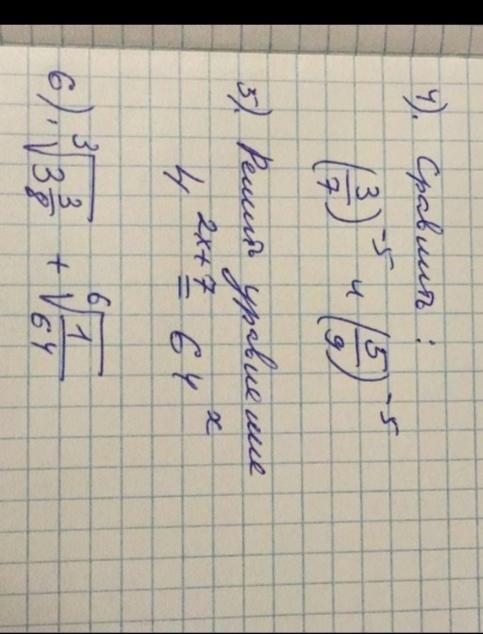 4). Сравнить:
(3/7)^-5 и (5/9)^-5
5). Решить уравнение
4^2x+7 = 64^x
6). ∛(3 3/8) + ⁶√(1/64)